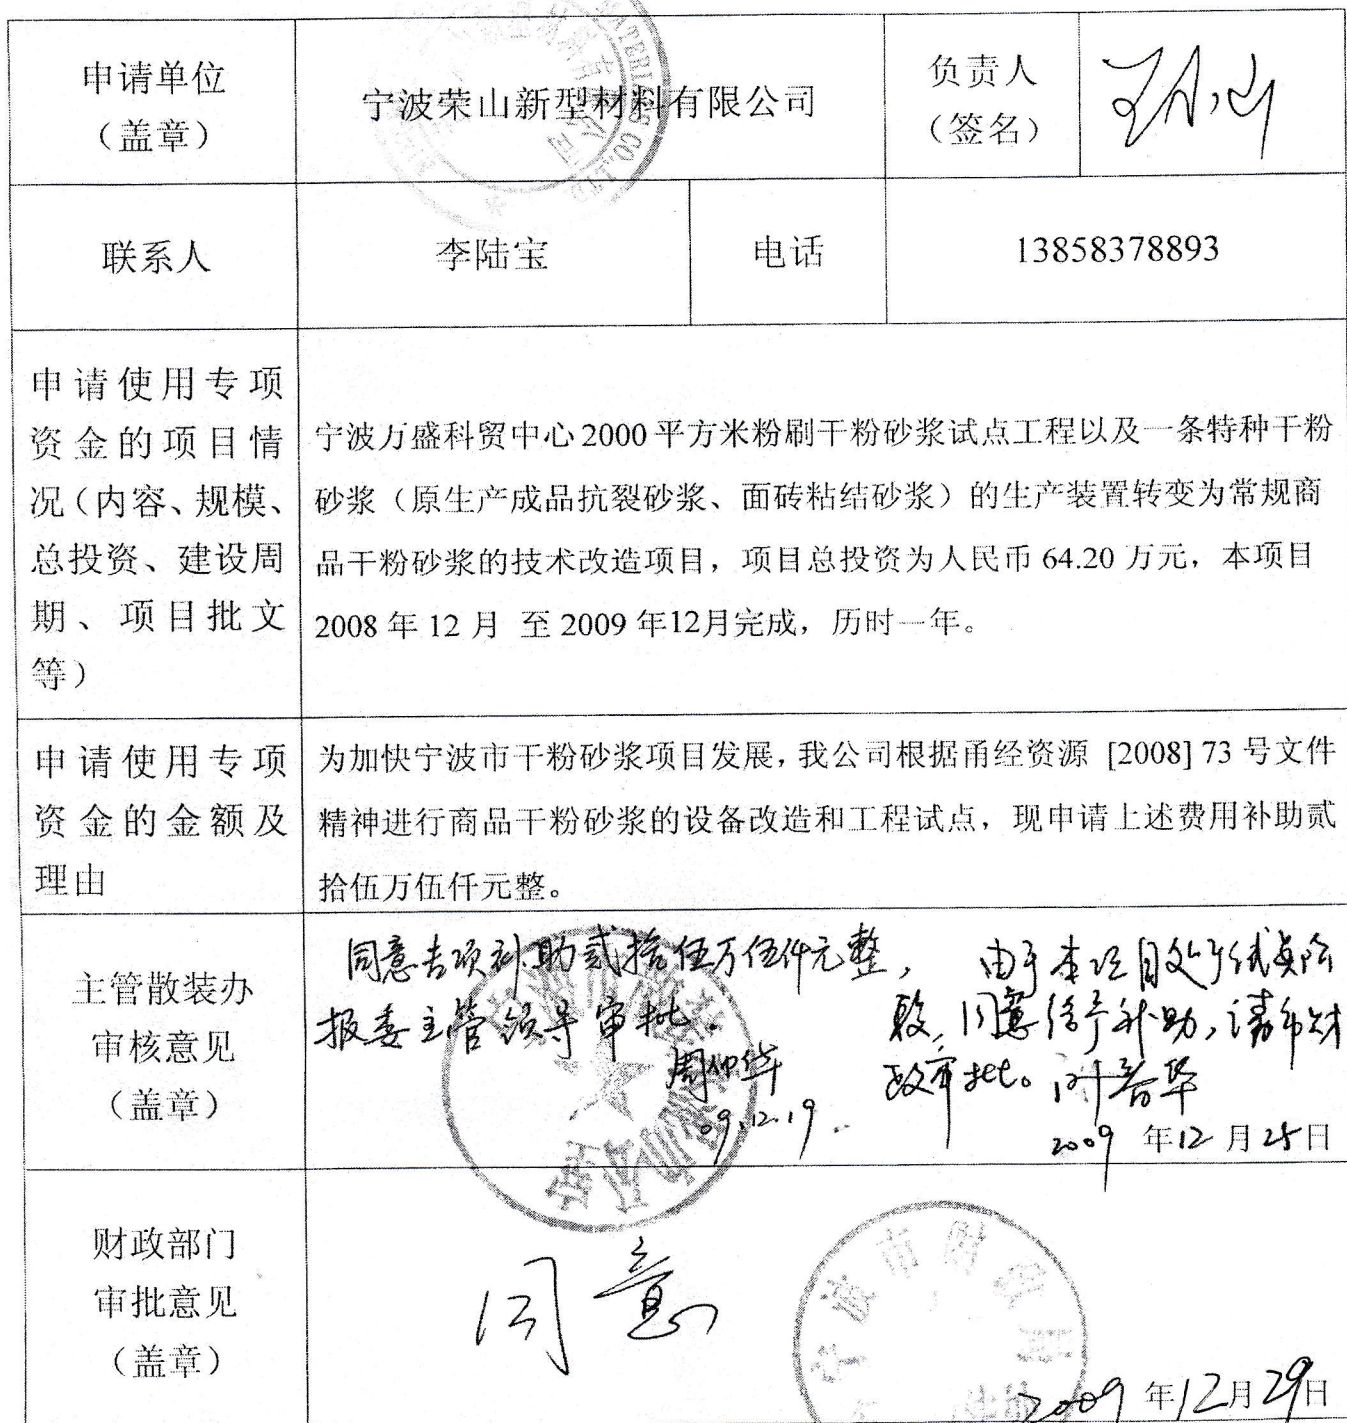 申请单位
（盖章）
宁波荣山新型材料有限公司
负责人
（签名）
联系人
李陆宝
电话
13858378893
申请使用专项
资金的项目情
况（内容、规模、
总投资、建设周
期、项目批文
等）
宁波万盛科贸中心2000平方米粉刷干粉砂浆试点工程以及一条特种干粉
砂浆（原生产成品抗裂砂浆、面砖粘结砂浆）的生产装置转变为常规商
品干粉砂浆的技术改造项目，项目总投资为人民币 64.20 万元，本项目
2008 年 12 月 至 2009 年12月完成，历时一年。
申请使用专项
资金的金额及
理由
为加快宁波市干粉砂浆项目发展，我公司根据甬经资源 [2008] 73 号文件
精神进行商品干粉砂浆的设备改造和工程试点，现申请上述费用补助贰
拾伍万伍仟元整。
主管散装办
审核意见
（盖章）
同意专项补助贰拾伍万伍仟元整，
报委主管领导审批。
09.12.19
由于本项目处于试点阶
段，同意给予补助，请市财
政审批。
2009 年12 月25日
财政部门
审批意见
（盖章）
同意
宁波市财政局
2009 年12月29日